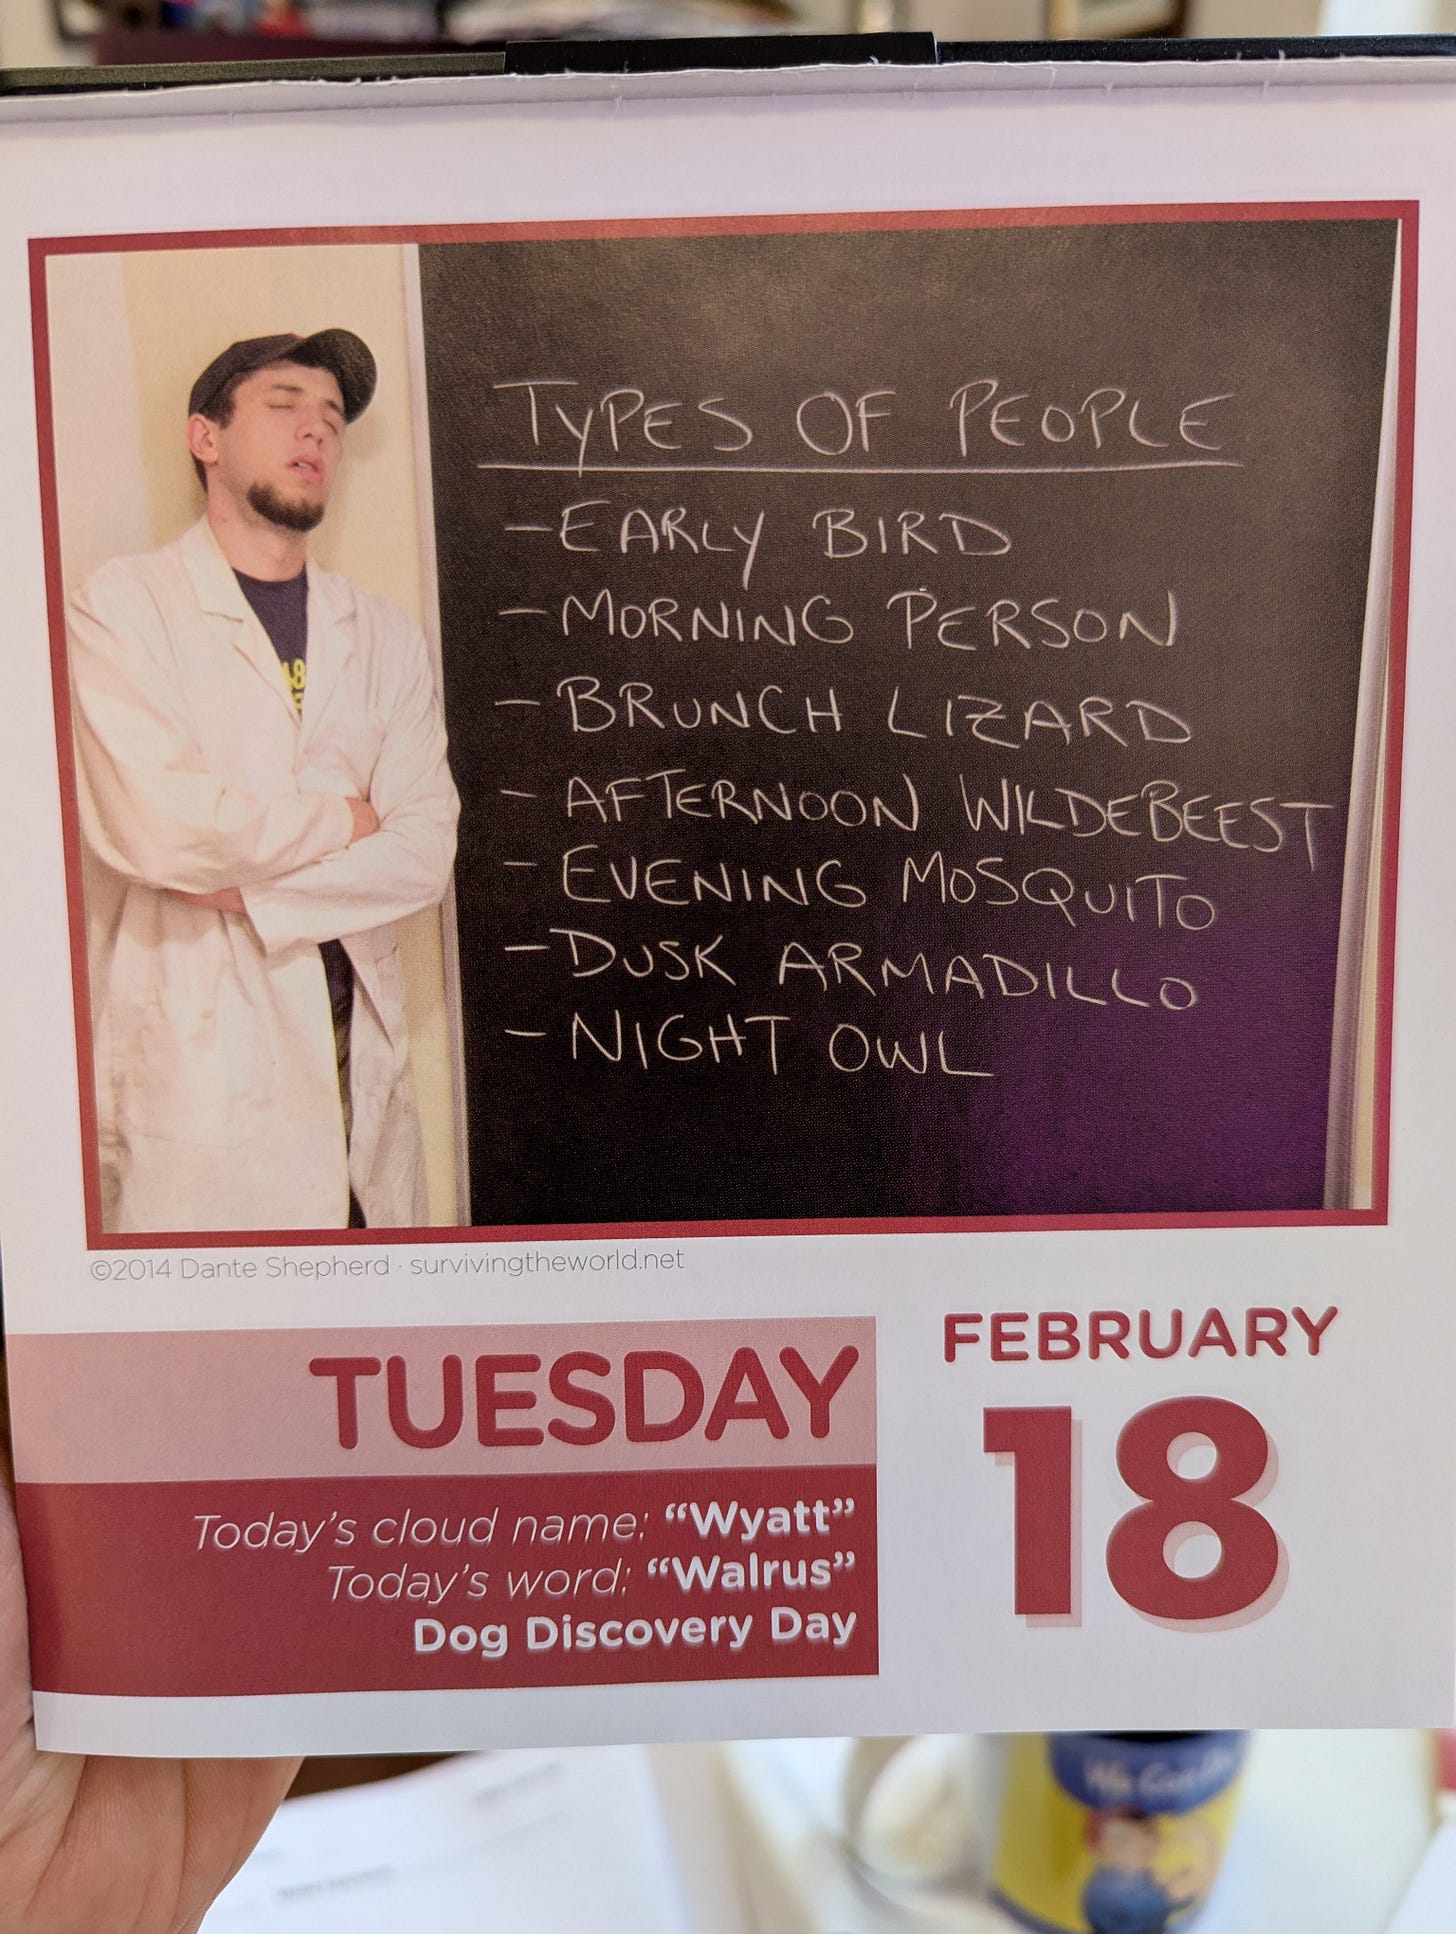 TYPES OF PEOPLE
- EARLY BIRD
- MORNING PERSON
- BRUNCH LIZARD
- AFTERNOON WILDEBEEST
- EVENING MOSQUITO
- DUSK ARMADILLO
- NIGHT OWL
48
©2014 Dante Shepherd · survivingtheworld.net
TUESDAY
Today's cloud name: “Wyatt”
Today's word: “Walrus”
Dog Discovery Day
FEBRUARY
18
We Can Do